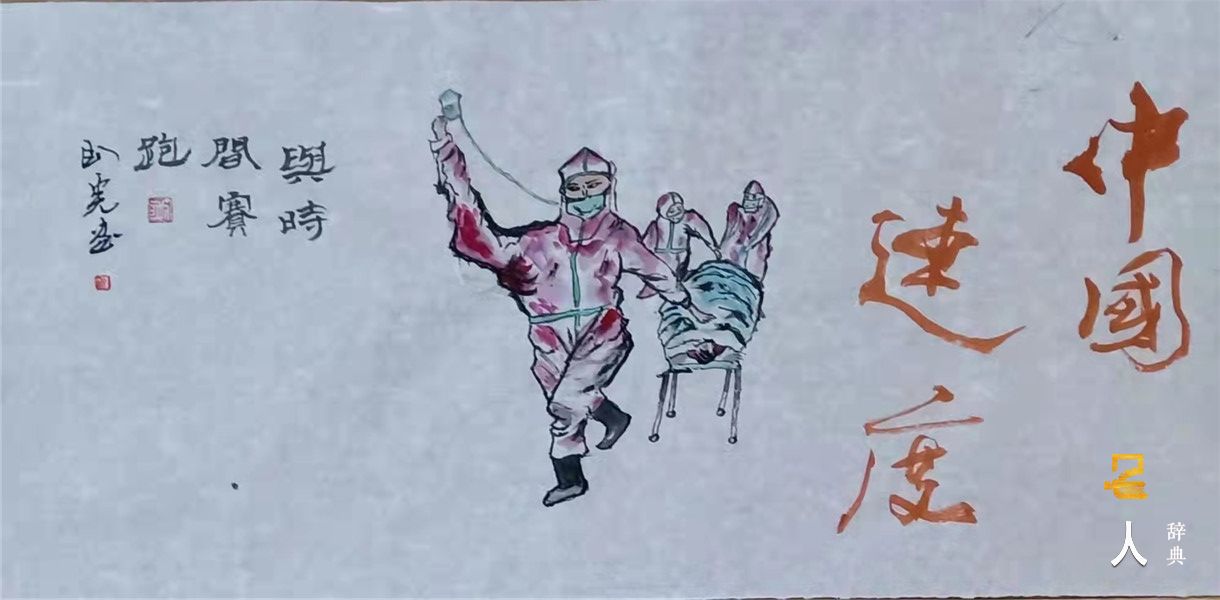 中國
速度
與時
間賽
跑
名人
辞典